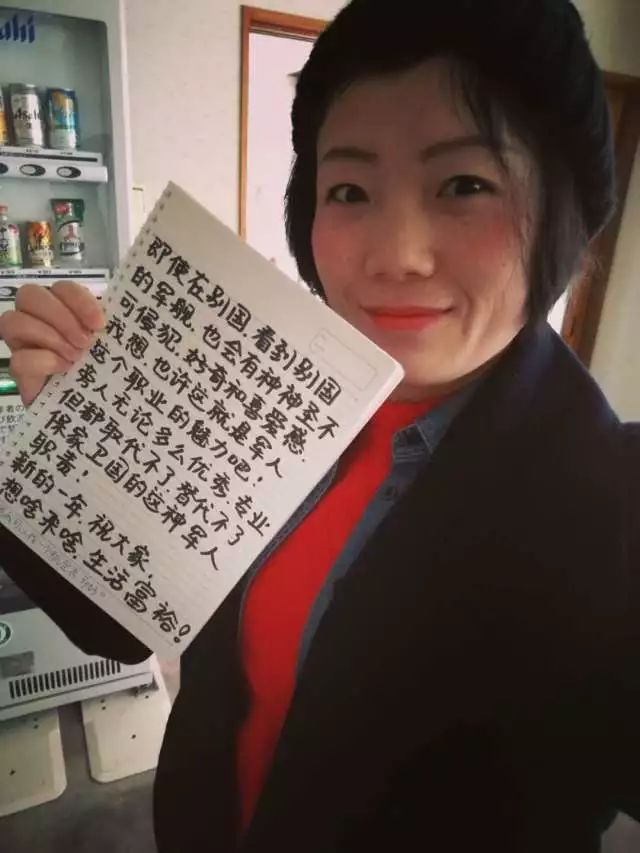 ahi
即使在别国看到别国
的军舰.也会有种神圣不
可侵犯.好有和喜爱感.
我想.也许这就是军人
这个职业的魅力吧!
旁人无论多么优秀.专业
但都取代不了替代不了
保家卫国的这种军人
职责!
新的一年.祝大家,
想啥来啥.生活富裕!